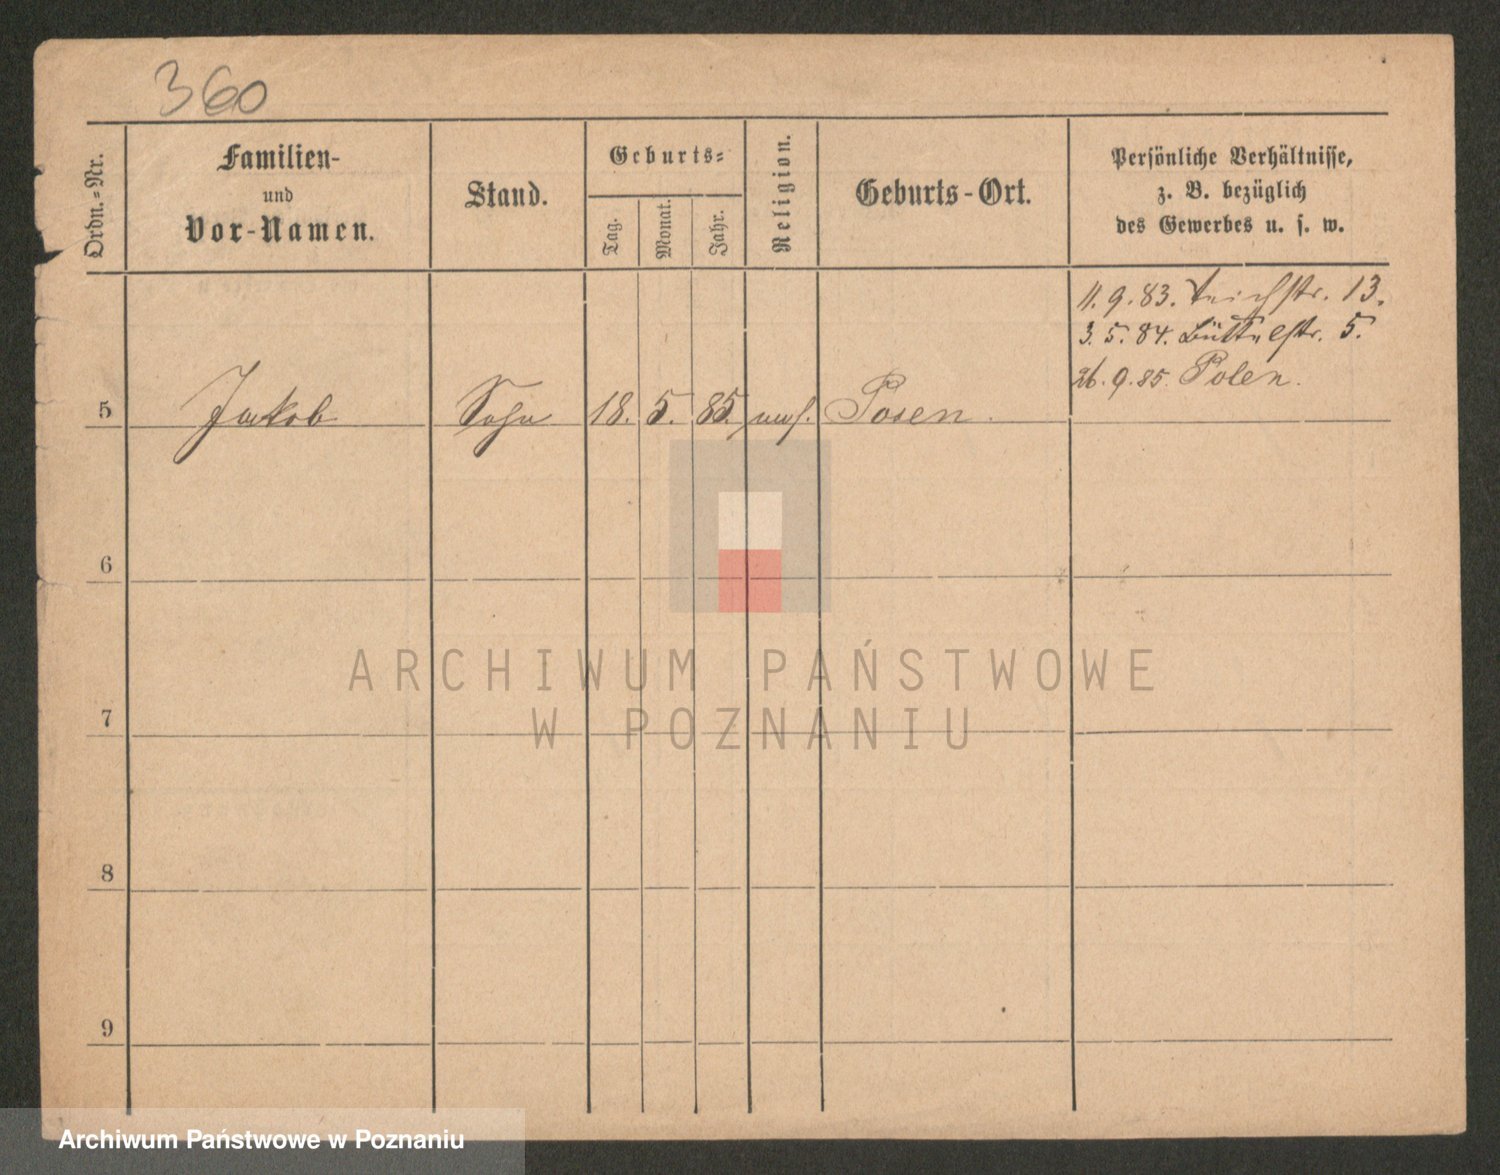 360
Ordn.-Nr.
Familien-
und
Vor-Namen.
Stand.
Geburts-
Tag.
Monat.
Jahr.
Religion.
Geburts-Ort.
Persönliche Verhältnisse,
z. B. bezüglich
des Gewerbes u. s. w.
11. 9. 83. Teichstr. 13.
3. 5. 84. Büttelstr. 5.
26. 9. 85. Polen.
5 Jakob Sohn 18. 5. 85. mos. Posen.
6
ARCHIWUM PAŃSTWOWE
W POZNANIU
7
8
9
Archiwum Państwowe w Poznaniu